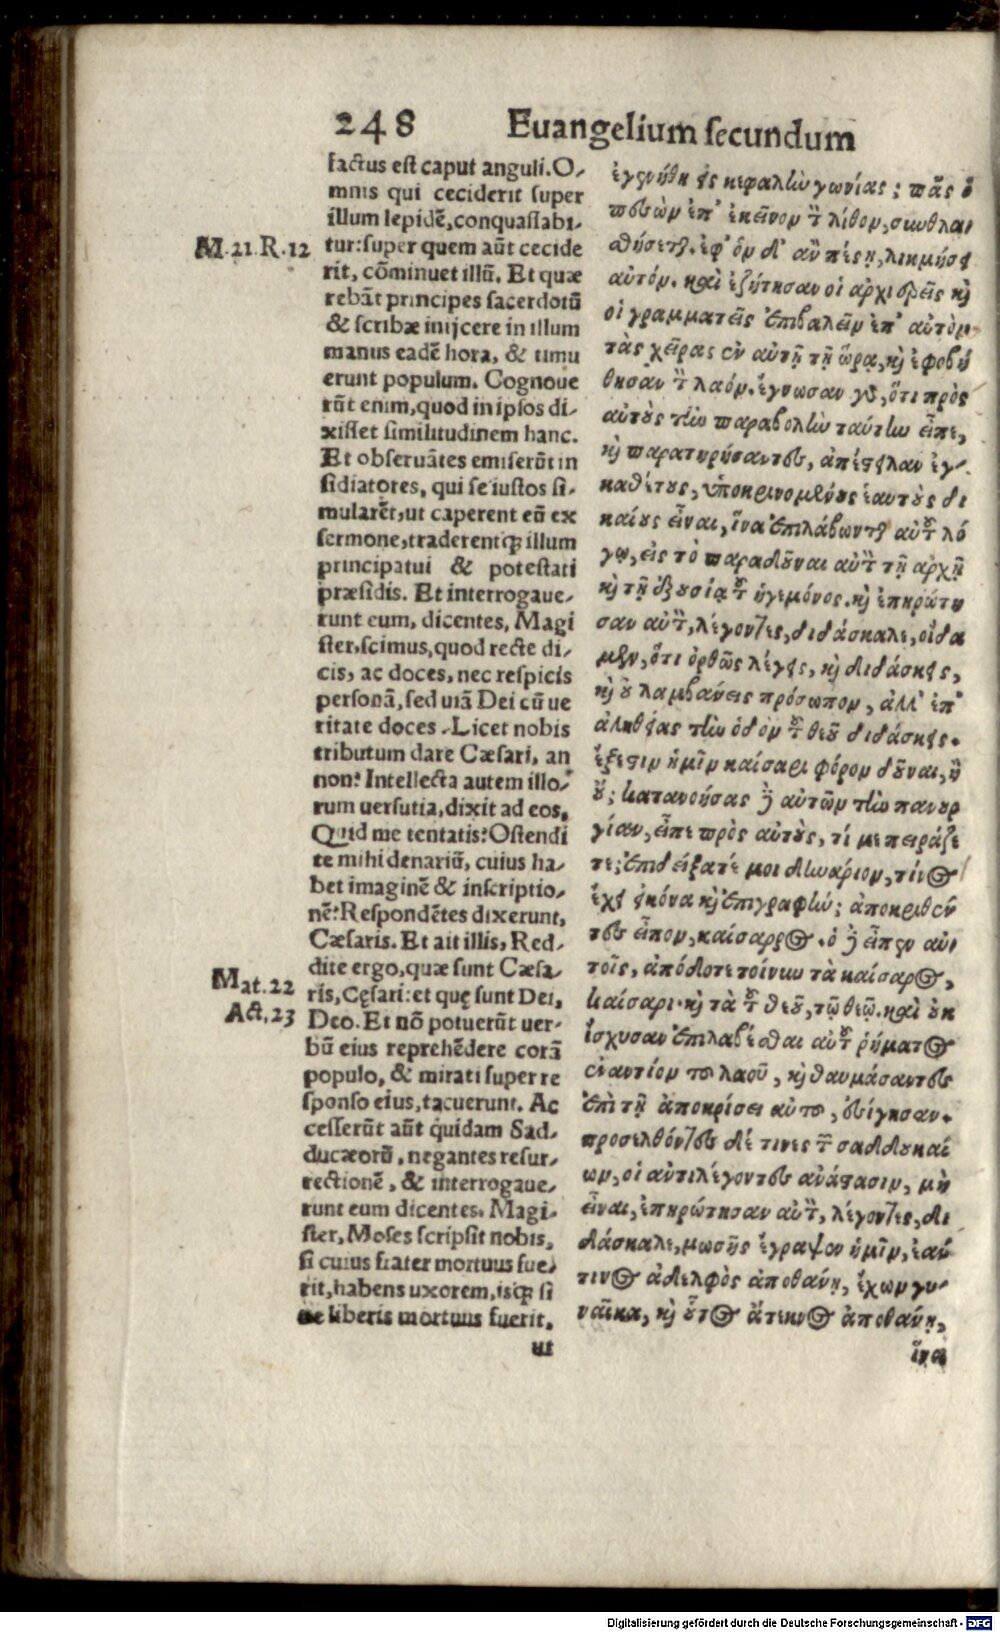 248 Euangelium ſecundum
factus eſt caput anguli. O⸗
mnis qui ceciderit ſuper
illum lepidē, conquaſſabi⸗
M. 21. R. 12
tur: ſuper quem aūt cecide
rit, cōminuet illū. Et quæ
rebāt principes ſacerdotū
& ſcribæ inijcere in illum
manus eadē hora, & timu
erunt populum. Cognoue
rūt enim, quod in ipſos di⸗
xiſſet ſimilitudinem hanc.
Et obſeruātes emiſerūt in
ſidiatores, qui ſe iuſtos ſi⸗
mularēt, ut caperent eū ex
ſermone, traderentq́; illum
principatui & poteſtati
præſidis. Et interrogaue⸗
runt eum, dicentes, Magi
ſter, ſcimus, quod recte di⸗
cis, ac doces, nec reſpicis
perſonā, ſed uiā Dei cū ue
ritate doces. Licet nobis
tributum dare Cæſari, an
non? Intellecta autem illo⸗
rum uerſutia, dixit ad eos,
Quid me tentatis? Oſtendi
te mihi denariū, cuius ha⸗
bet imaginē & inſcriptio⸗
nē? Reſpondētes dixerunt,
Cæſaris. Et ait illis, Red⸗
dite ergo, quæ ſunt Cæſa⸗
Mat. 22
ris, Cęſari: et quę ſunt Dei,
Act. 23
Deo. Et nō potuerūt uer⸗
bū eius reprehēdere corā
populo, & mirati ſuper re
ſponſo eius, tacuerunt. Ac
ceſſerūt aūt quidam Sad⸗
ducæorū, negantes reſur⸗
rectionē, & interrogaue⸗
runt eum dicentes. Magi⸗
ſter, Moſes ſcripſit nobis,
ſi cuius frater mortuus fue⸗
rit, habens uxorem, isq́; ſi
ne liberis mortuus fuerit,
ut
ἐγενήθη εἰς κεφαλὴν γωνίας; πᾶς ὁ
πεσὼν ἐπ' ἐκεῖνον τὸν λίθον, συνθλα⸗
σθήσεται. ἐφ' ὃν δ' ἂν πέσῃ, λικμήσει
αὐτόν. καὶ ἐζήτησαν οἱ ἀρχιερεῖς καὶ
οἱ γραμματεῖς ἐπιβαλεῖν ἐπ' αὐτὸν
τὰς χεῖρας ἐν αὐτῇ τῇ ὥρᾳ, καὶ ἐφοβή
θησαν τὸν λαόν. ἔγνωσαν γὰρ, ὅτι πρὸς
αὐτοὺς τὴν παραβολὴν ταύτην εἶπε,
καὶ παρατηρήσαντες, ἀπέστειλαν ἐγ⸗
καθέτους, ὑποκρινομένους ἑαυτοὺς δι
καίους εἶναι, ἵνα ἐπιλάβωνται αὐτοῦ λό
γῳ, εἰς τὸ παραδοῦναι αὐτὸν τῇ ἀρχῇ
καὶ τῇ ἐξουσίᾳ τοῦ ἡγεμόνος. καὶ ἐπηρώτη
σαν αὐτὸν, λέγοντες, διδάσκαλε, οἴδα
μεν, ὅτι ὀρθῶς λέγεις, καὶ διδάσκεις,
καὶ οὐ λαμβάνεις πρόσωπον, ἀλλ' ἐπ'
ἀληθείας τὴν ὁδὸν τοῦ θεοῦ διδάσκεις.
ἔξεστιν ἡμῖν καίσαρι φόρον δοῦναι, ἢ
οὔ; κατανοήσας δὲ αὐτῶν τὴν πανουρ
γίαν, εἶπε πρὸς αὐτοὺς, τί με πειράζε
τε; ἐπιδείξατέ μοι δηνάριον, τίνος
ἔχει εἰκόνα καὶ ἐπιγραφήν; ἀποκριθέν
τες εἶπον, καίσαρος. ὁ δὲ εἶπεν αὐ⸗
τοῖς, ἀπόδοτε τοίνυν τὰ καίσαρος,
καίσαρι. καὶ τὰ τοῦ θεοῦ, τῷ θεῷ. καὶ οὐκ
ἴσχυσαν ἐπιλαβέσθαι αὐτοῦ ῥήματος
ἐναντίον τοῦ λαοῦ, καὶ θαυμάσαντες
ἐπὶ τῇ ἀποκρίσει αὐτοῦ, ἐσίγησαν.
προσελθόντες δέ τινες τῶν σαδδουκαί
ων, οἱ ἀντιλέγοντες ἀνάστασιν, μὴ
εἶναι, ἐπηρώτησαν αὐτὸν, λέγοντες, δι
δάσκαλε, μωσῆς ἔγραψεν ἡμῖν, ἐάν
τινος ἀδελφὸς ἀποθάνῃ, ἔχων γυ⸗
ναῖκα, καὶ οὗτος ἄτεκνος ἀποθάνῃ,
ἵνα
Digitalisierung gefördert durch die Deutsche Forschungsgemeinschaft - DFG